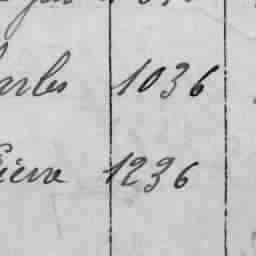 arles 1036
ierre 1236